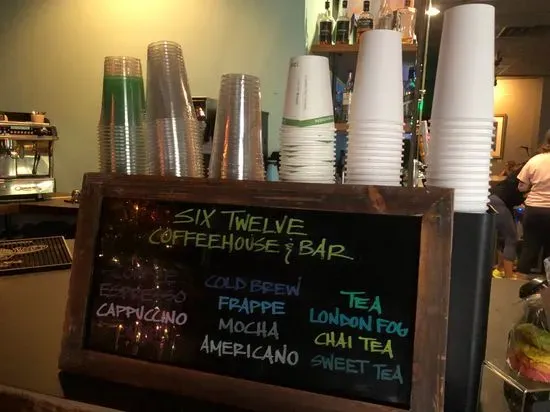 SIX TWELVE
COFFEEHOUSE & BAR
COFFEE
ESPRESSO
CAPPUCCINO
COLD BREW
FRAPPE
MOCHA
AMERICANO
TEA
LONDON FOG
CHAI TEA
SWEET TEA